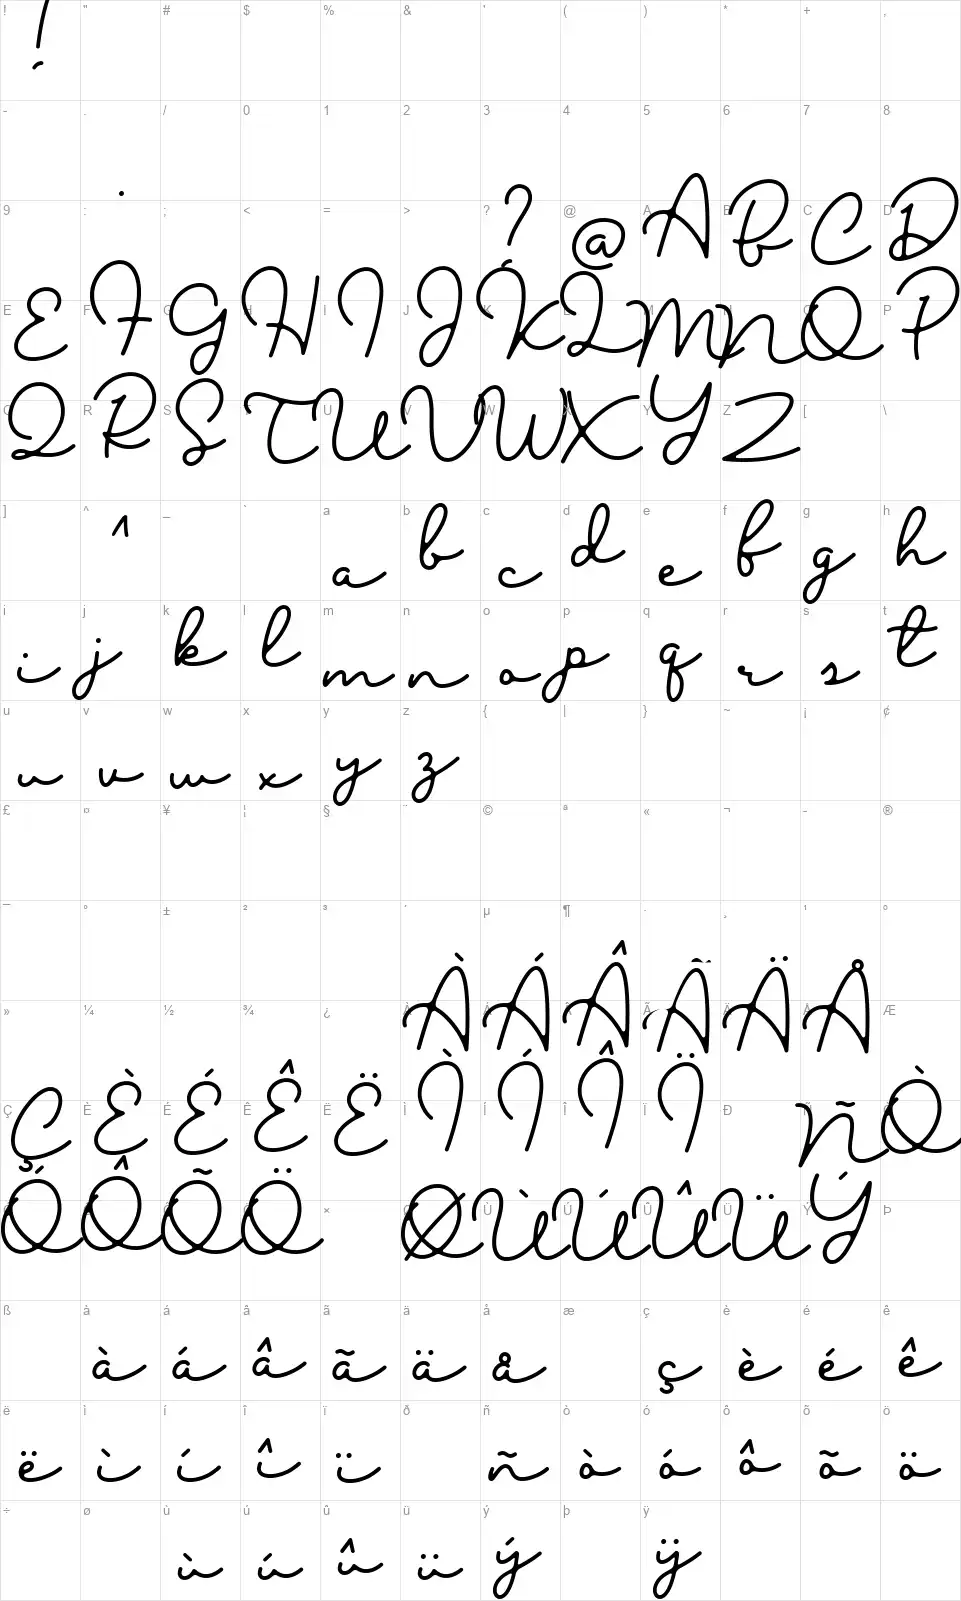 ! " # $ % & ' ( ) * + ,
!
- . / 0 1 2 3 4 5 6 7 8
.
9 : ; < = > ? @ A B C D
? @ A B C D
E F G H I J K L M N O P
E F G H I J K L M N O P
Q R S T U V W X Y Z [ \
Q R S T U V W X Y Z
] ^ _ ` a b c d e f g h
^ a b c d e f g h
i j k l m n o p q r s t
i j k l m n o p q r s t
u v w x y z { | } ~ ¡ ¢
u v w x y z
£ ¤ ¥ ¦ § ¨ © ª « ¬ - ®
¯ ° ± ² ³ ´ µ ¶ · ¸ ¹ º
À Á Â Ã Ä Å
» ¼ ½ ¾ ¿ À Á Â Ã Ä Å Æ
Ç È É Ê Ë Ì Í Î Ï Ñ Ò
Ç È É Ê Ë Ì Í Î Ï Ð Ñ Ò
Ó Ô Õ Ö Ø Ù Ú Û Ü Ý
Ó Ô Õ Ö × Ø Ù Ú Û Ü Ý Þ
ß à á â ã ä å æ ç è é ê
à á â ã ä å ç è é ê
ë ì í î ï ð ñ ò ó ô õ ö
ë ì í î ï ñ ò ó ô õ ö
÷ ø ù ú û ü ý þ ÿ
ù ú û ü ý ÿ